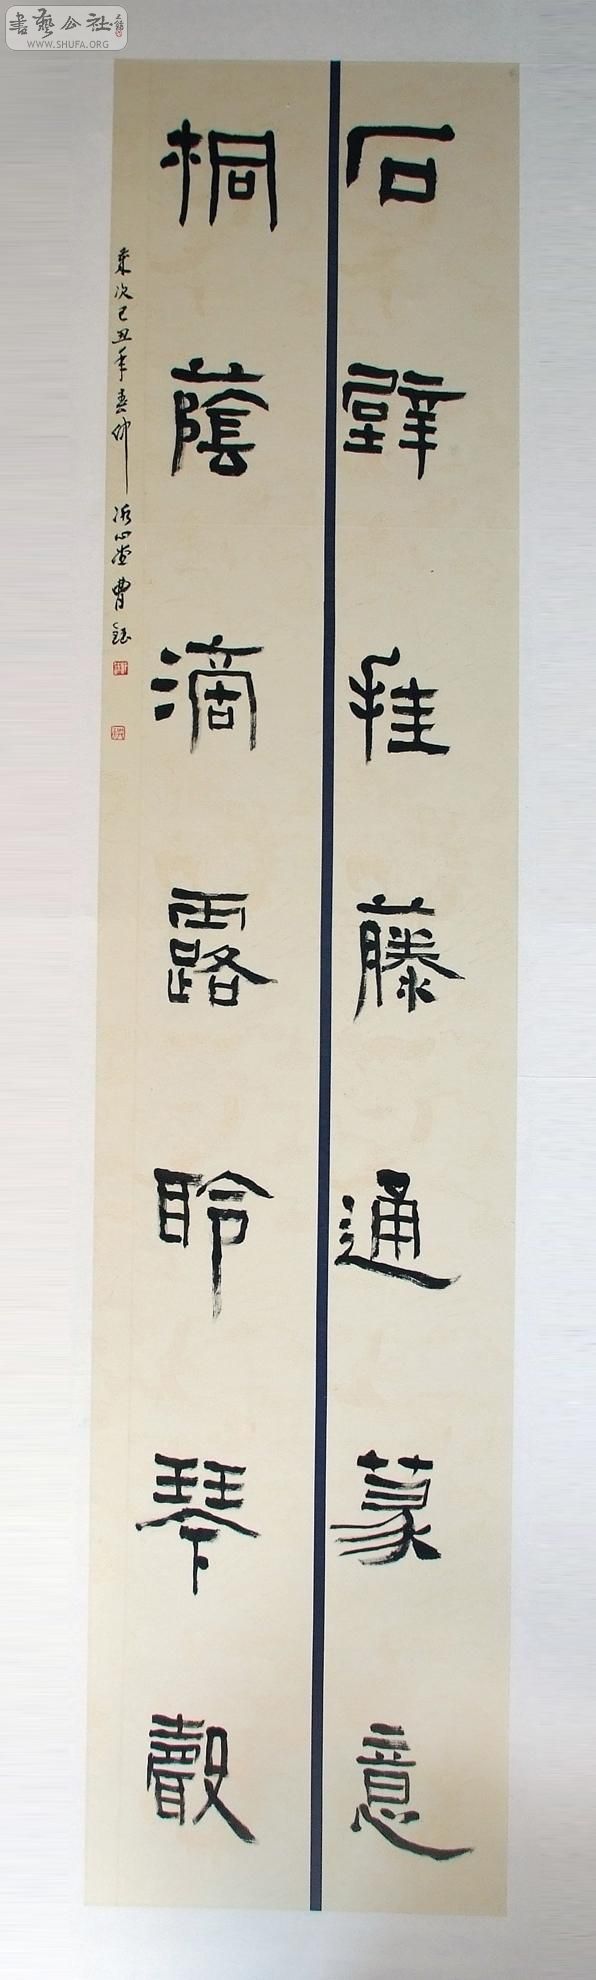 書藝公社
WWW.SHUFA.ORG
石壁挂藤通篆意
桐蔭滴露聆琴聲
歲次己丑年春仲 冰心堂 曹鈺